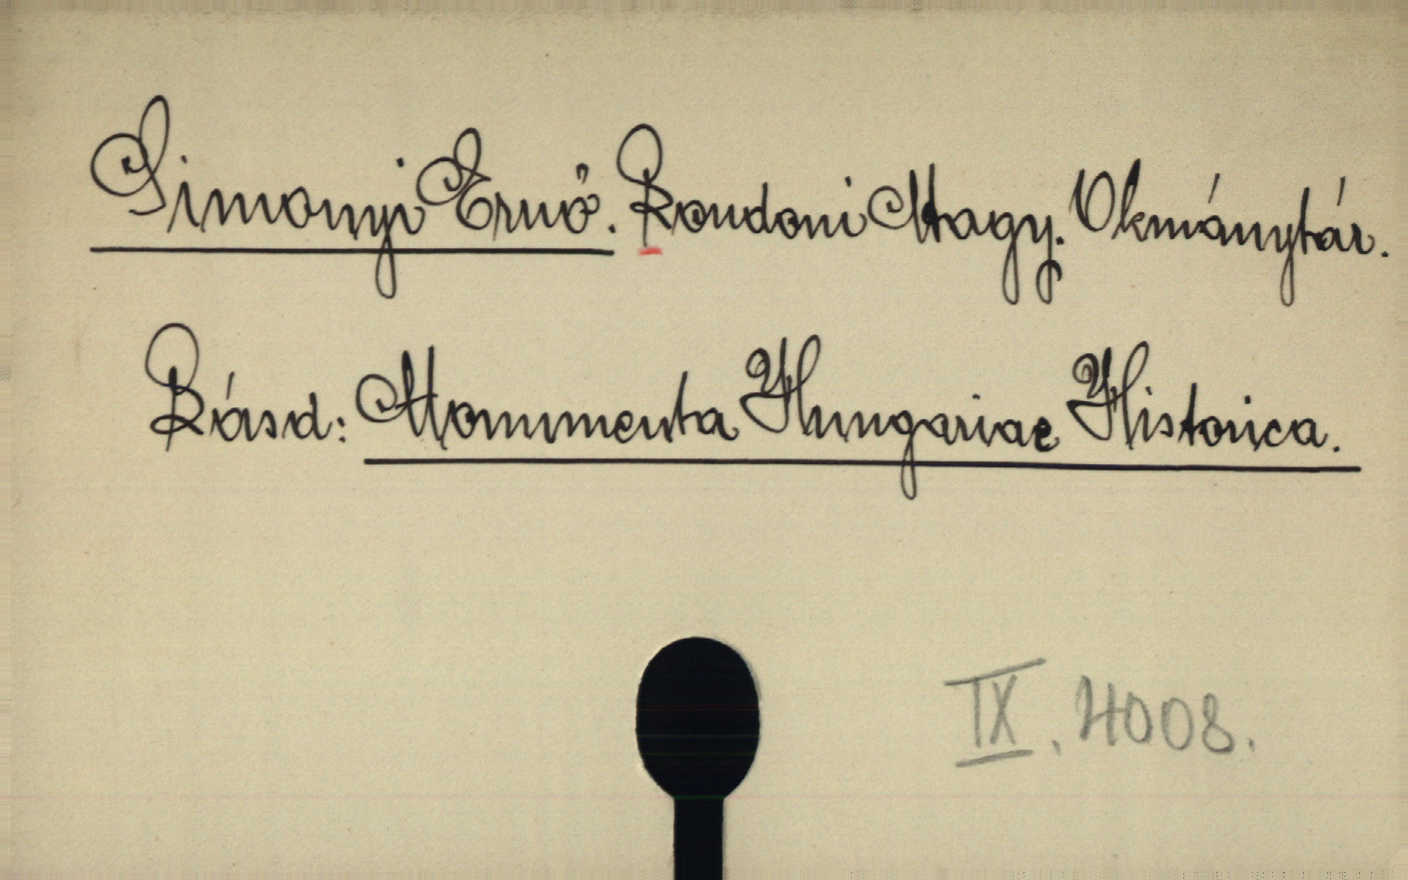 Simonyi Ernő. Londoni Magy. Okmánytár.
Lásd: Monumenta Hungariae Historica.
IX. 4008.